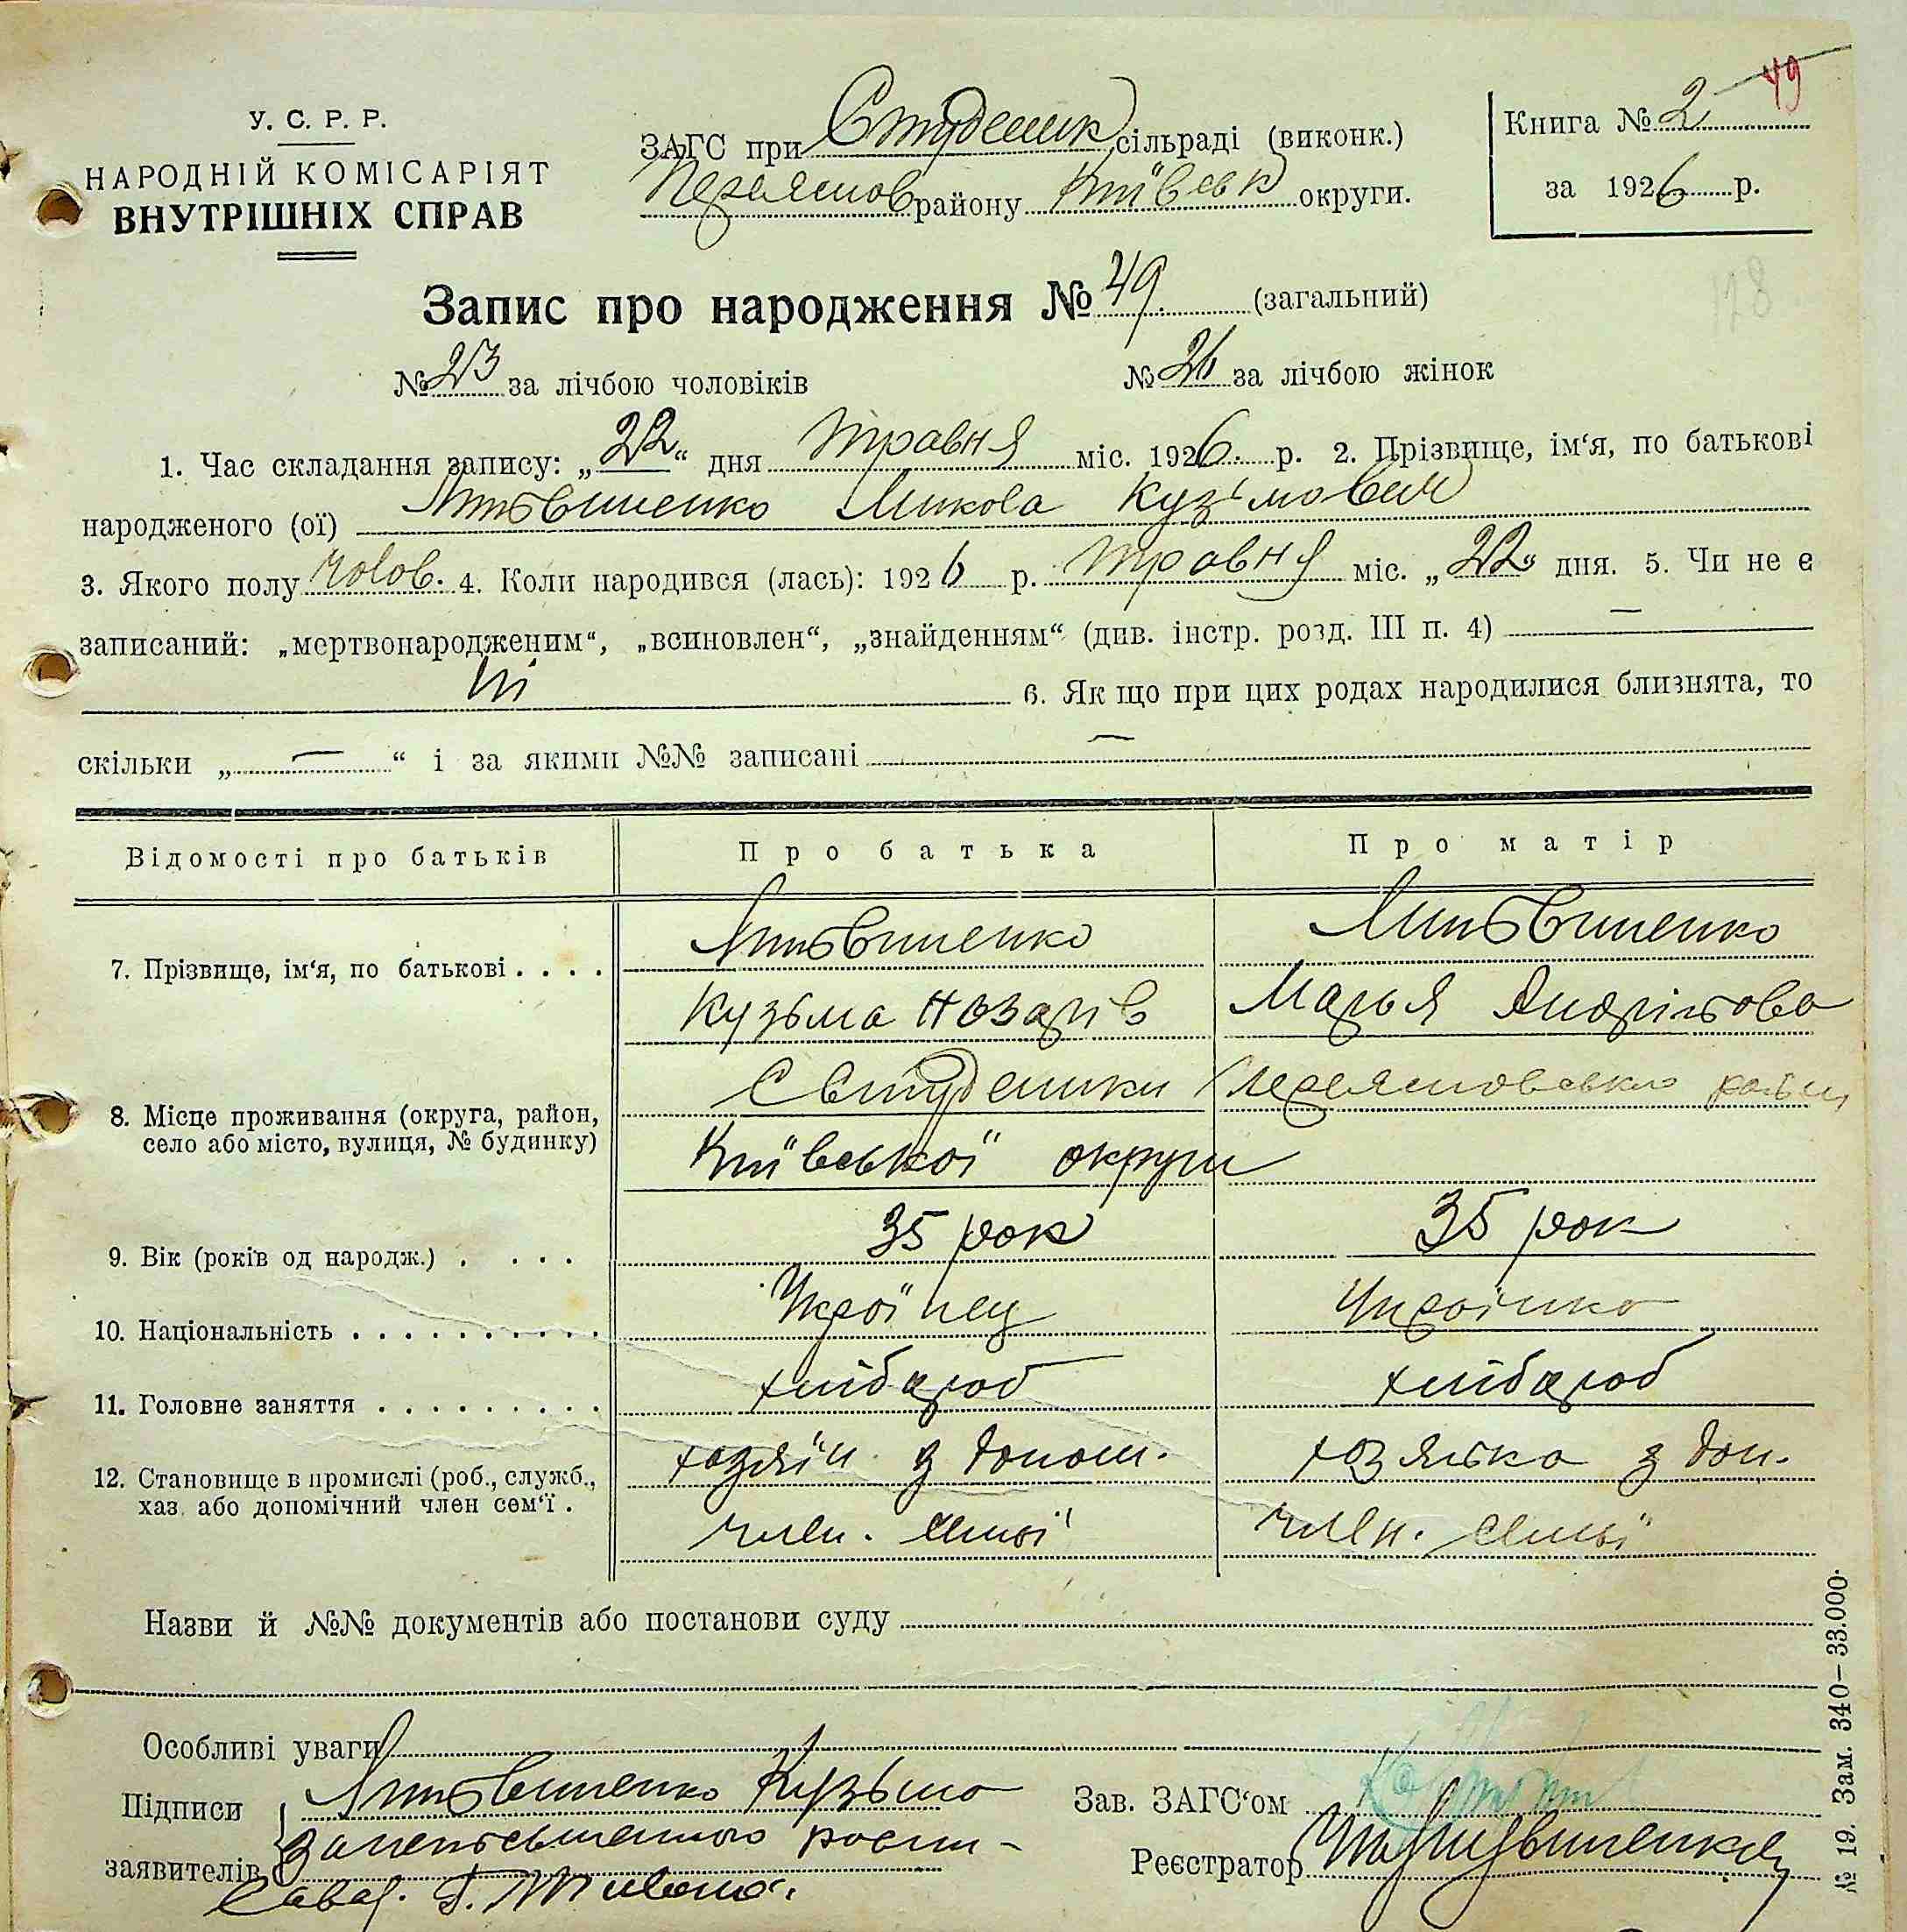 49
У. С. Р. Р.
НАРОДНІЙ КОМІСАРІЯТ
ВНУТРІШНІХ СПРАВ
ЗАГС при Студеник сільраді (виконк.)
Переяслов району Київськ округи.
Книга № 2
за 1926 р.
128
Запис про народження № 49. (загальний)
№ 23 за лічбою чоловіків № 26 за лічбою жінок
1. Час складання запису: „22“ дня травня міс. 1926. р. 2. Прізвище, ім‘я, по батькові
народженого (ої) Литвиненко Микола Кузьмович
3. Якого полу чолов. 4. Коли народився (лась): 1926 р. травня міс. „22“ дня. 5. Чи не є
записаний: „мертвонародженим“, „всиновлен“, „знайденням“ (див. інстр. розд. III п. 4) —
ні 6. Як що при цих родах народилися близнята, то
скільки „ — “ і за якими №№ записані —
Відомості про батьків Про батька Про матір
7. Прізвище, ім‘я, по батькові . . . . Литвиненко Литвиненко
Кузьма Назарів Марья Андріівова
8. Місце проживання (округа, район, село або місто, вулиця, № будинку) С Студеники Переясловсько району
Київської округи
9. Вік (років од народж.) . . . . 35 рок 35 рок
10. Національність . . . . . . . . . . Українец Українка
11. Головне заняття . . . . . . . . . хлібороб хлібороб
12. Становище в промислі (роб., служб., хаз. або допомічний член сем‘ї . хозяїн з допом. хозяйка з доп.
член. симї член. симї
Назви й №№ документів або постанови суду
Особливі уваги
Підписи Литвиненко Кузьма
заявителів за неписьменного
Зав. ЗАГС‘ом
Реєстратор
№ 19. Зам. 340—33.000.